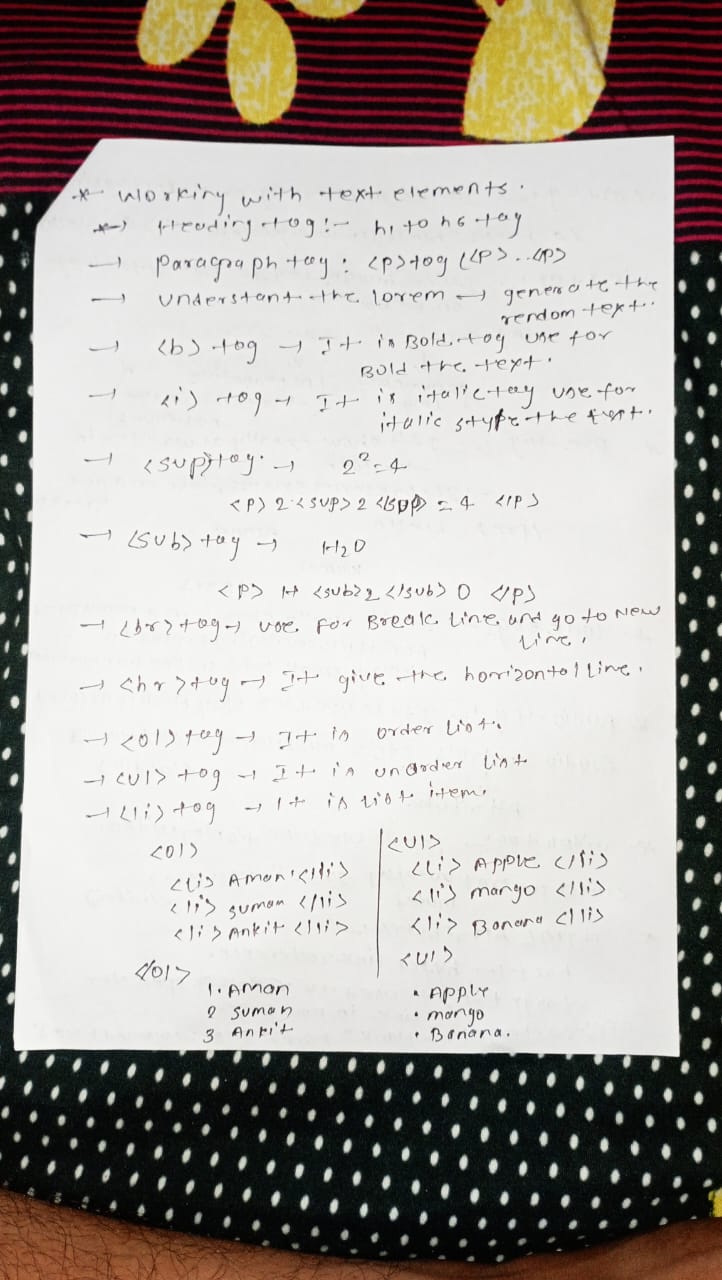 * Working with text elements.
*) Heading tag:- h1 to h6 tag
→ Paragraph tag: <p> tag (<p>..<p>
→ understant the lorem → generate the
rendom text..
→ <b> tag → It is Bold. tag use for
Bold the text.
→ <i> tag → It is italic tag use for
italic style the
→ <sup> tag. → 2² = 4
<p> 2 <sup> 2 </sup> = 4 </p>
→ <sub> tag → H2O
<p> H <sub> 2 </sub> O </p>
→ <br> tag → use for Break line and go to New
line.
→ <hr> tag → It give the horizontal line.
→ <ol> tag → It is order list.
→ <ul> tag → It is unorder list
→ <li> tag → It is list item.
<ol>
<li> Aman </li>
<li> suman </li>
<li> Ankit </li>
</ol>
1. Aman
2 suman
3 Ankit
<ul>
<li> Apple </li>
<li> mango </li>
<li> Banana </li>
<ul>
• Apple
• mango
• Banana.